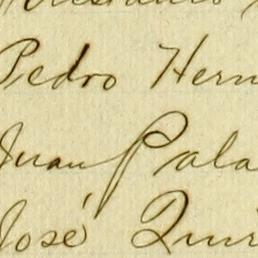 Pedro Hern
Juan Pala
José Quir